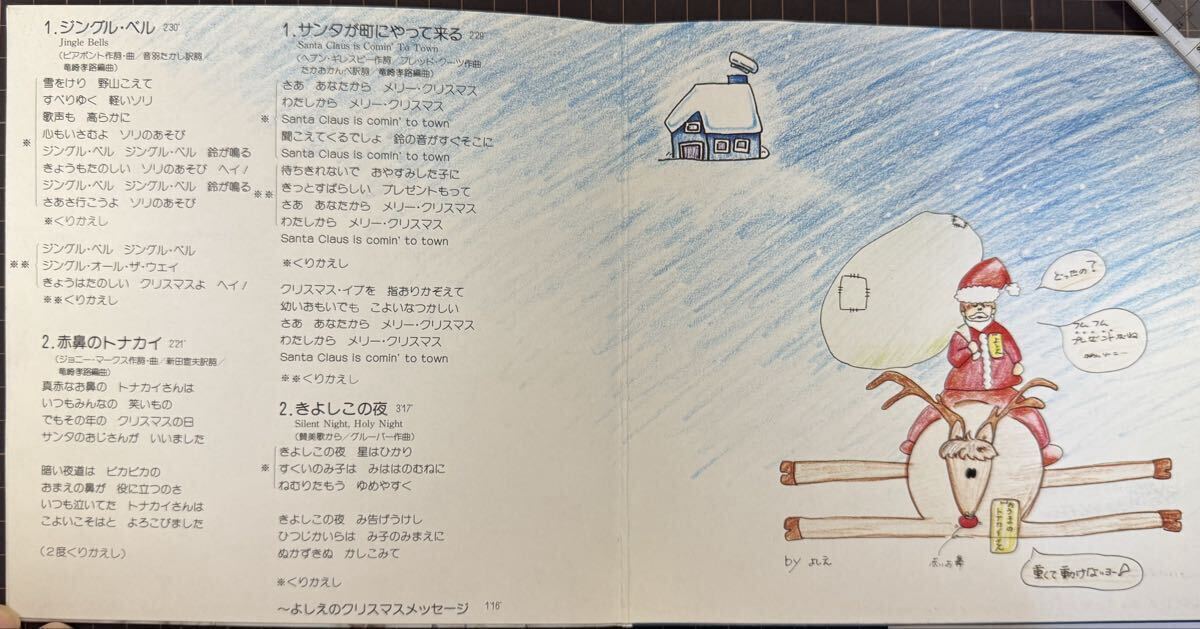 1.ジングル・ベル 2'30"
Jingle Bells
(ピアポント作詞・曲/音羽たかし訳詞/
竜崎孝路編曲)
雪をけり 野山こえて
すべりゆく 軽いソリ
歌声も 高らかに
※ 心もいさむよ ソリのあそび
ジングル・ベル ジングル・ベル 鈴が鳴る
きょうもたのしい ソリのあそび ヘイ!
ジングル・ベル ジングル・ベル 鈴が鳴る
さあさ行こうよ ソリのあそび
※くりかえし
ジングル・ベル ジングル・ベル
※※ ジングル・オール・ザ・ウェイ
きょうはたのしい クリスマスよ ヘイ!
※※くりかえし
2.赤鼻のトナカイ 2'21"
(ジョニー・マークス作詞・曲/新田宣夫訳詞/
竜崎孝路編曲)
真赤なお鼻の トナカイさんは
いつもみんなの 笑いもの
でもその年の クリスマスの日
サンタのおじさんが いいました
暗い夜道は ピカピカの
おまえの鼻が 役に立つのさ
いつも泣いてた トナカイさんは
こよいこそはと よろこびました
(2度くりかえし)
1.サンタが町にやって来る 2'29"
Santa Claus is Comin' To Town
(ヘブン・ギレスピー作詞 フレッド・クーツ作曲
たかおかんべ訳詞/竜崎孝路編曲)
さあ あなたから メリー・クリスマス
わたしから メリー・クリスマス
※ Santa Claus is comin' to town
聞こえてくるでしょ 鈴の音がすぐそこに
Santa Claus is comin' to town
待ちきれないで おやすみした子に
※※ きっとすばらしい プレゼントもって
さあ あなたから メリー・クリスマス
わたしから メリー・クリスマス
Santa Claus is comin' to town
※くりかえし
クリスマス・イブを 指おりかぞえて
幼いおもいでも こよいなつかしい
さあ あなたから メリー・クリスマス
わたしから メリー・クリスマス
Santa Claus is comin' to town
※※くりかえし
2.きよしこの夜 3'17"
Silent Night, Holy Night
(賛美歌から/グルーバー作曲)
きよしこの夜 星はひかり
※ すくいのみ子は みははのむねに
ねむりたもう ゆめやすく
きよしこの夜 み告げうけし
ひつじかいらは み子のみまえに
ぬかずきぬ かしこみて
※くりかえし
〜よしえのクリスマスメッセージ 1'16"
どったの?
フム フム
プレゼントだね
よしえ
トナカイさん
by よしえ
赤いお鼻
重くて動けないヨー♪